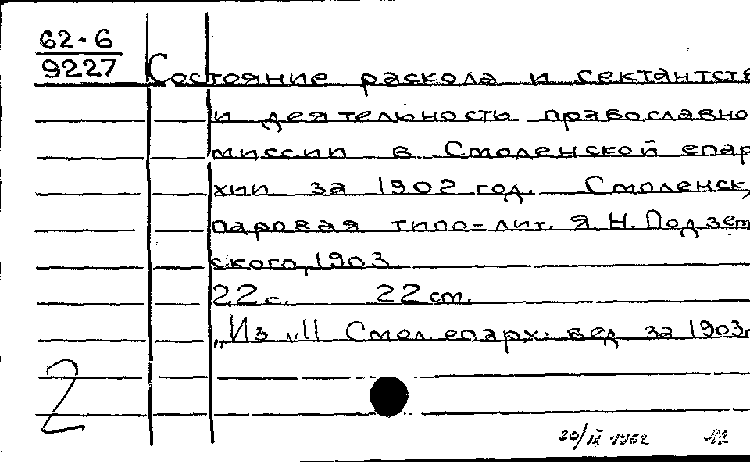 62-6
9227
Состояние раскола и сектантств
и деятельность православно
миссии в Смоленской епар
хии за 1902 год. Смоленск,
паровая типо-лит. Я. Н. Подзем
ского, 1903
22 с. 22 ст.
„Из „11 Смол. епарх. вед за 1903г
2
20/IX 1962